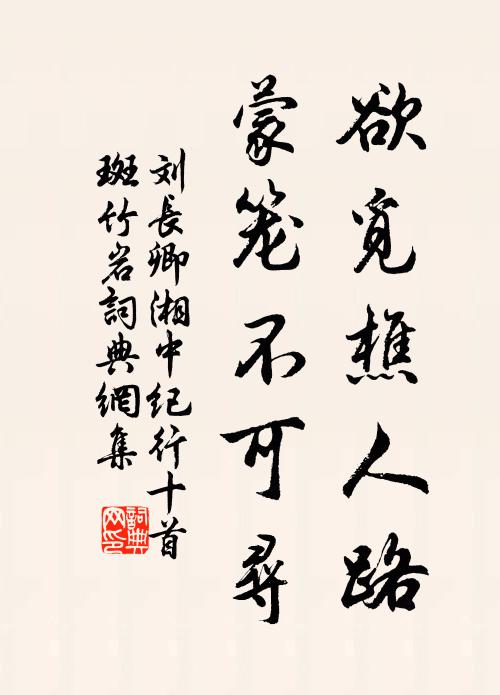 欲覓樵人路
蒙笼不可尋
刘長卿湘中纪行十首
斑竹岩詞典網集
詞典
网印